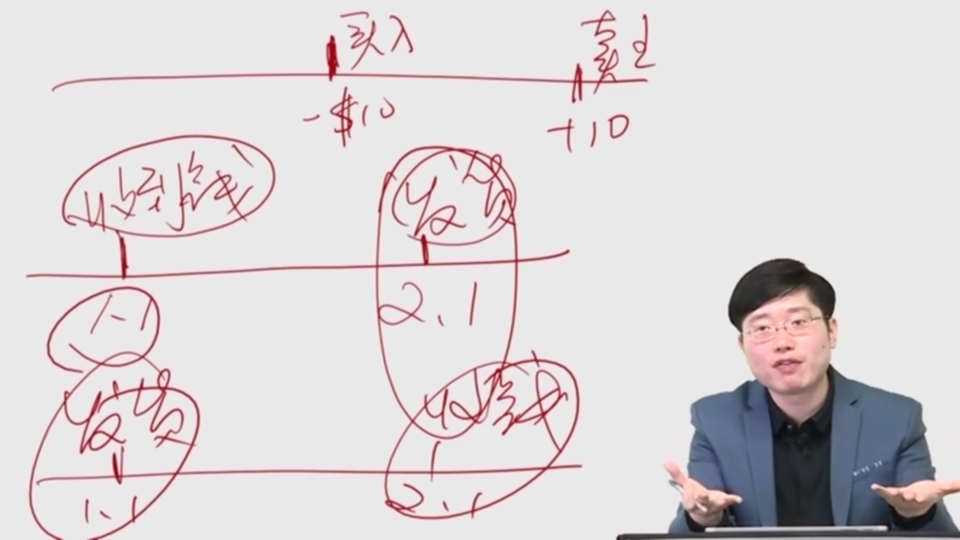 买入 卖出
-$10 +10
收到钱 发货
1.1 2.1
发货 收到钱
1.1 2.1